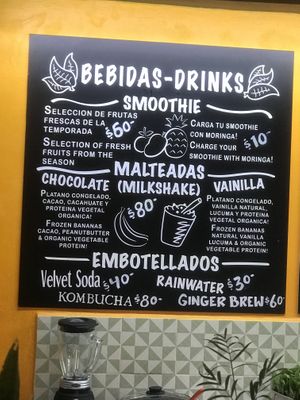 BEBIDAS-DRINKS
SMOOTHIE
SELECCION DE FRUTAS
FRESCAS DE LA
TEMPORADA
$60-
SELECTION OF FRESH
FRUITS FROM THE
SEASON
CARGA TU SMOOTHIE
CON MORINGA!
$10-
CHARGE YOUR
SMOOTHIE WITH MORINGA!
MALTEADAS
(MILKSHAKE)
$80-
CHOCOLATE
PLATANO CONGELADO,
CACAO, CACAHUATE Y
PROTEINA VEGETAL
ORGANICA!
FROZEN BANANAS
CACAO, PEANUTBUTTER
& ORGANIC VEGETABLE
PROTEIN!
VAINILLA
PLATANO CONGELADO,
VAINILLA NATURAL
LUCUMA Y PROTEINA
VEGETAL ORGANICA!
FROZEN BANANAS
NATURAL VANILLA
LUCUMA & ORGANIC
VEGETABLE PROTEIN!
EMBOTELLADOS
Velvet Soda $40-
RAINWATER $30-
KOMBUCHA $80-
GINGER BREW $60-